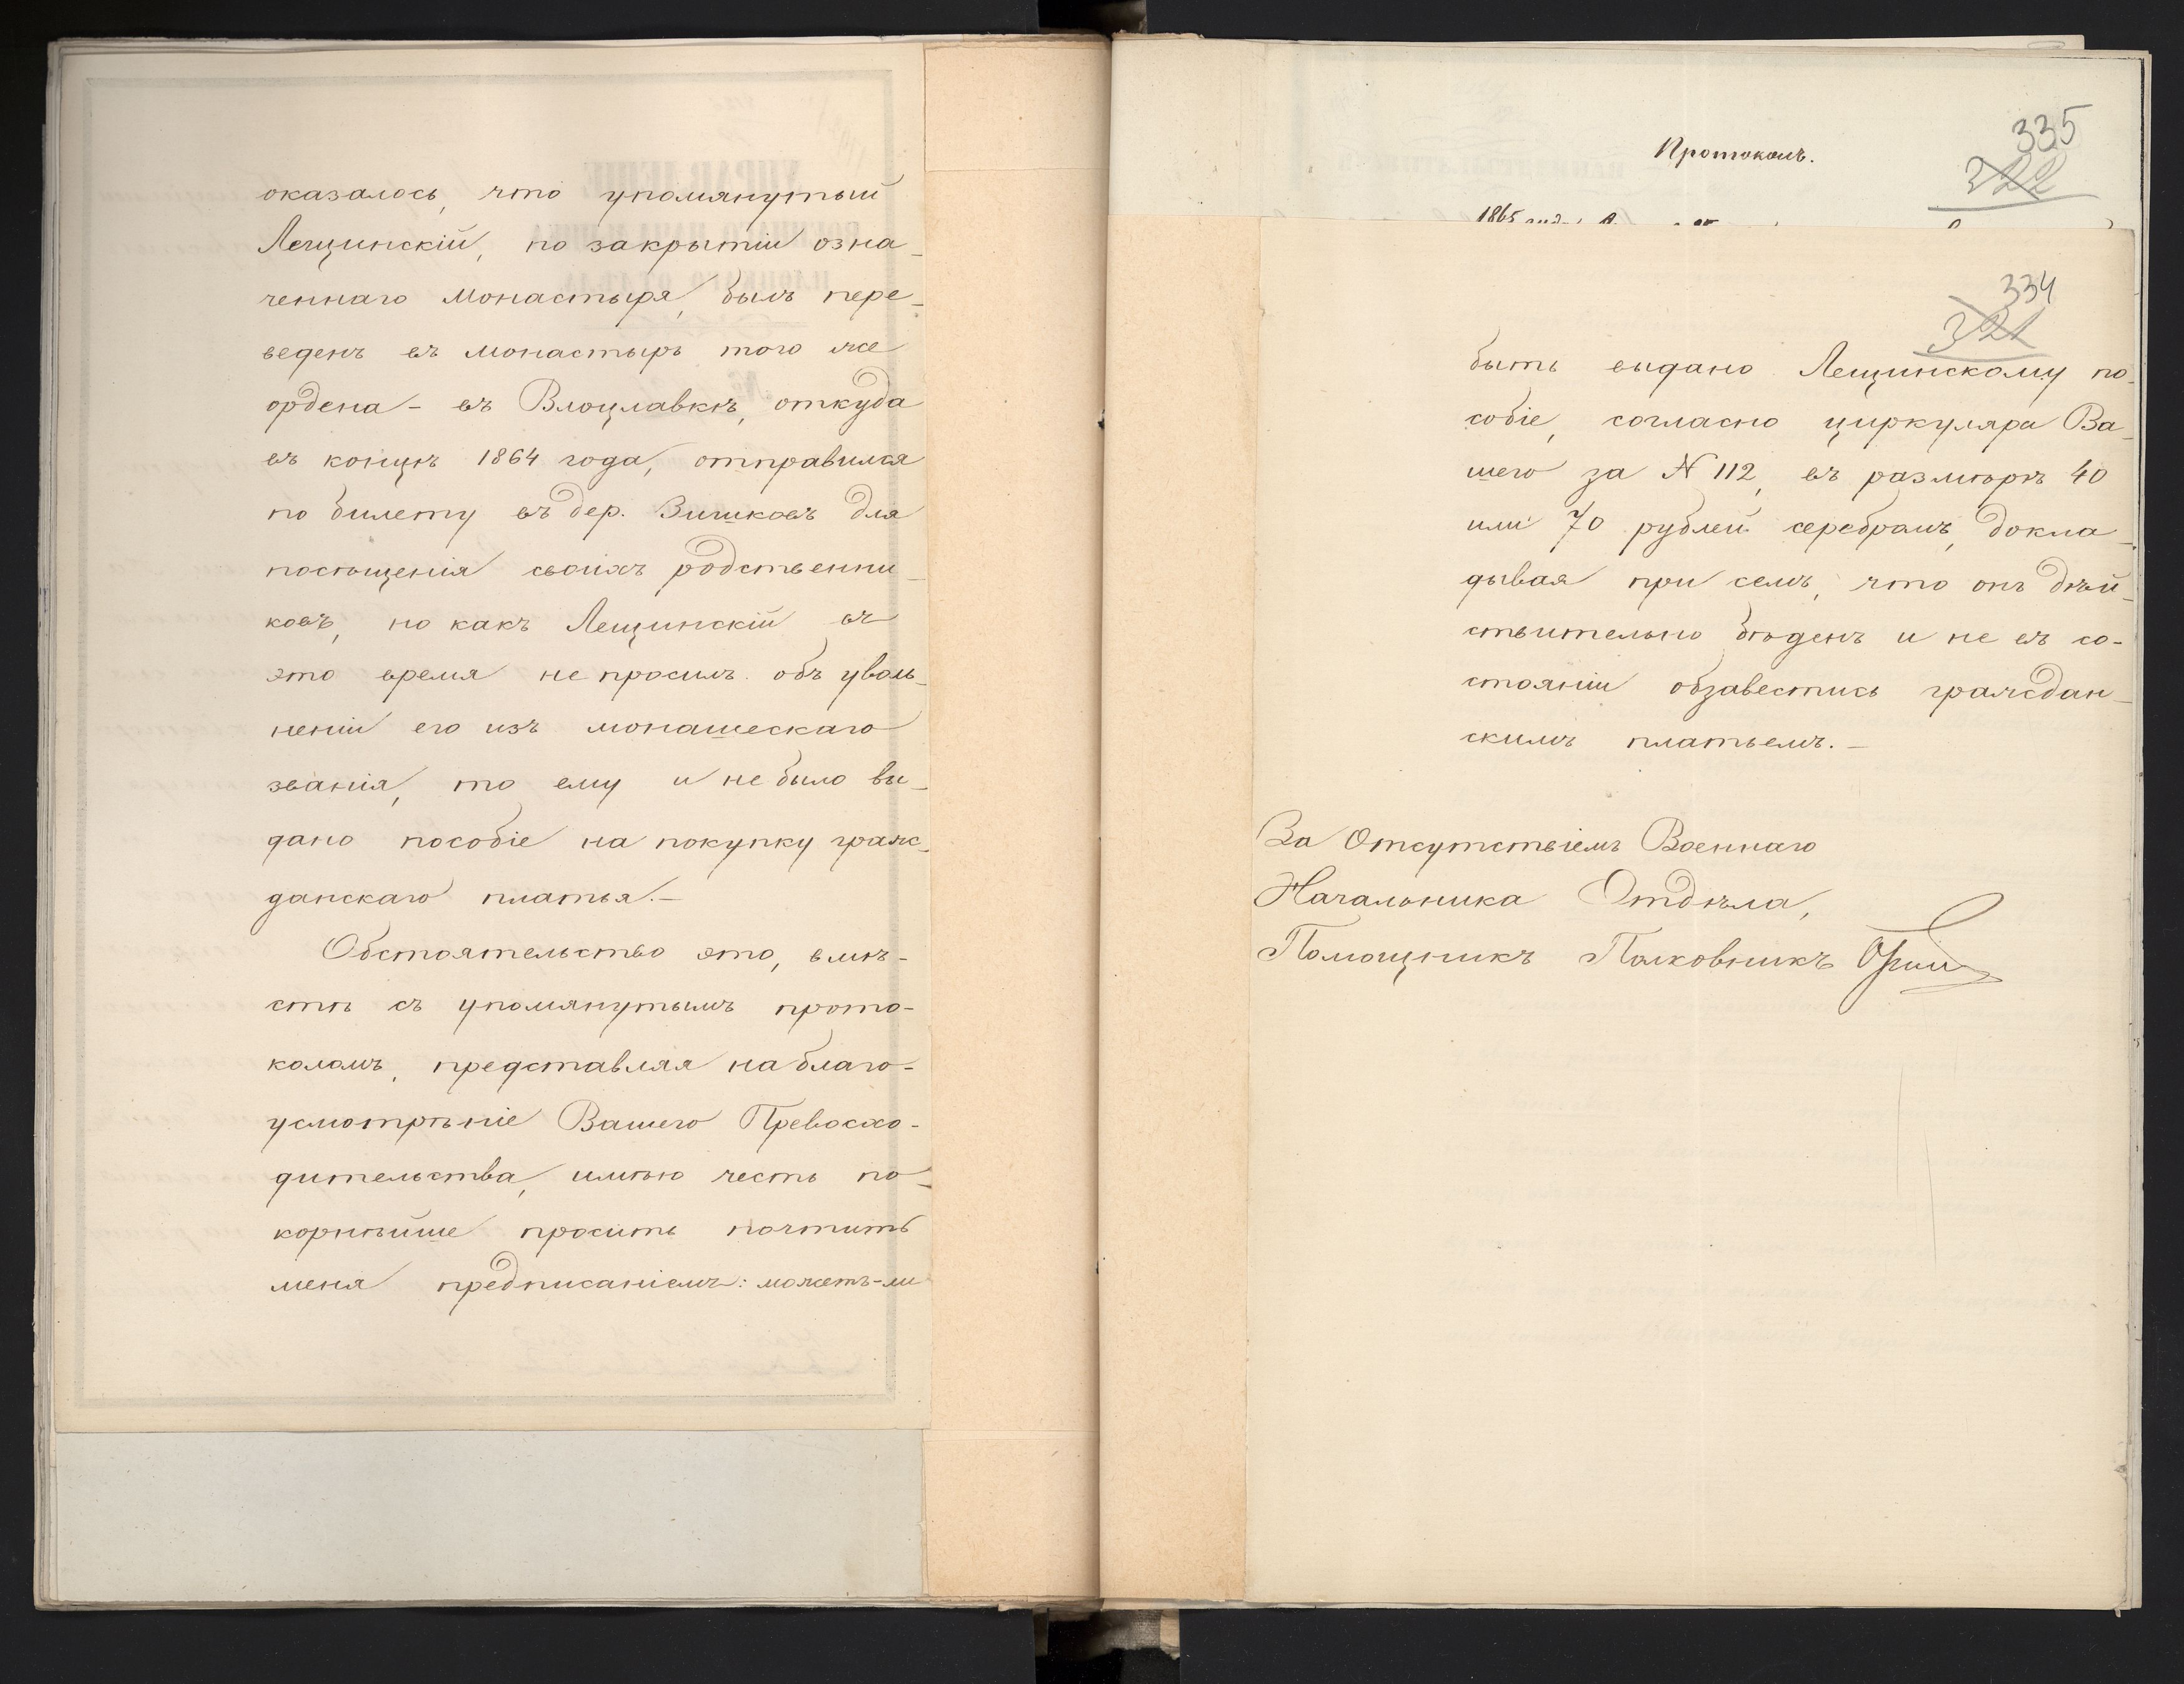 оказалось, что упомянутый
Лещинскій, по закрытіи озна-
ченнаго монастыря, былъ пере-
веденъ въ монастырь того же
ордена - въ Влоцлавкѣ, откуда
въ концѣ 1864 года, отправился
по билету въ дер. для
посѣщенія своихъ родственни-
ковъ, но какъ Лещинскій въ
это время не просилъ объ уволь-
неніи его изъ монашескаго
званія, то ему и не было вы-
дано пособіе на покупку граж-
данскаго платья.-
Обстоятельство это, вмѣ-
стѣ съ упомянутымъ прото-
коломъ, представляя на благо-
усмотрѣніе Вашего Превосхо-
дительства, имѣю честь по-
корнѣйше просить почтить
меня предписаніемъ: можетъ-ли
Протоколъ.
335
322
1865
334
321
быть выдано Лещинскому по-
собіе, согласно циркуляра Ва-
шего за N 112, въ размѣрѣ 40
или 70 рублей серебромъ, докла-
дывая при семъ, что онъ дѣй-
ствительно бѣденъ и не въ со-
стояніи обзавестись граждан-
скимъ платьемъ.-
За Отсутствіемъ Военнаго
Начальника Отдѣла,
Помощникъ Полковникъ